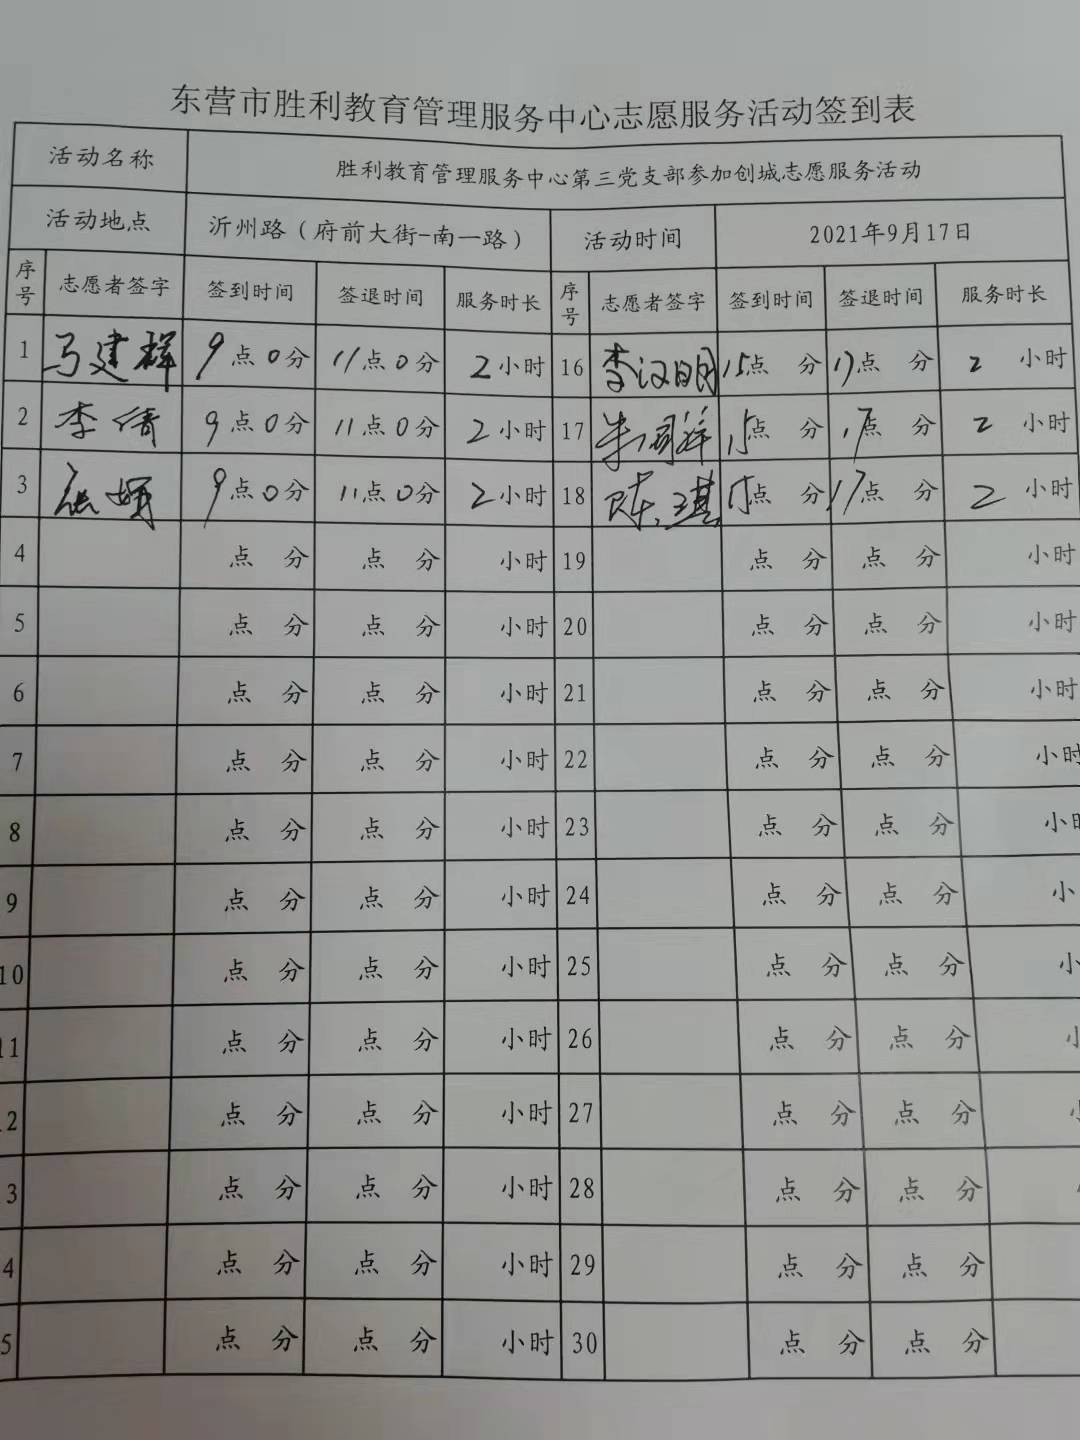 东营市胜利教育管理服务中心志愿服务活动签到表
活动名称 胜利教育管理服务中心第三党支部参加创城志愿服务活动
活动地点 沂州路（府前大街-南一路） 活动时间 2021年9月17日
序号 志愿者签字 签到时间 签退时间 服务时长 序号 志愿者签字 签到时间 签退时间 服务时长
1 马建群 9点0分 11点0分 2小时 16 李汉明 15点 分 17点 分 2 小时
2 李倩 9点0分 11点0分 2小时 17 朱同祥 15点 分 17点 分 2 小时
3 9点0分 11点0分 2小时 18 陈琪 15点 分 17点 分 2 小时
4 点 分 点 分 小时 19 点 分 点 分 小时
5 点 分 点 分 小时 20 点 分 点 分 小时
6 点 分 点 分 小时 21 点 分 点 分 小时
7 点 分 点 分 小时 22 点 分 点 分 小时
8 点 分 点 分 小时 23 点 分 点 分 小时
9 点 分 点 分 小时 24 点 分 点 分 小
10 点 分 点 分 小时 25 点 分 点 分 小
11 点 分 点 分 小时 26 点 分 点 分
2 点 分 点 分 小时 27 点 分 点 分
3 点 分 点 分 小时 28 点 分 点 分
4 点 分 点 分 小时 29 点 分 点 分
5 点 分 点 分 小时 30 点 分 点 分